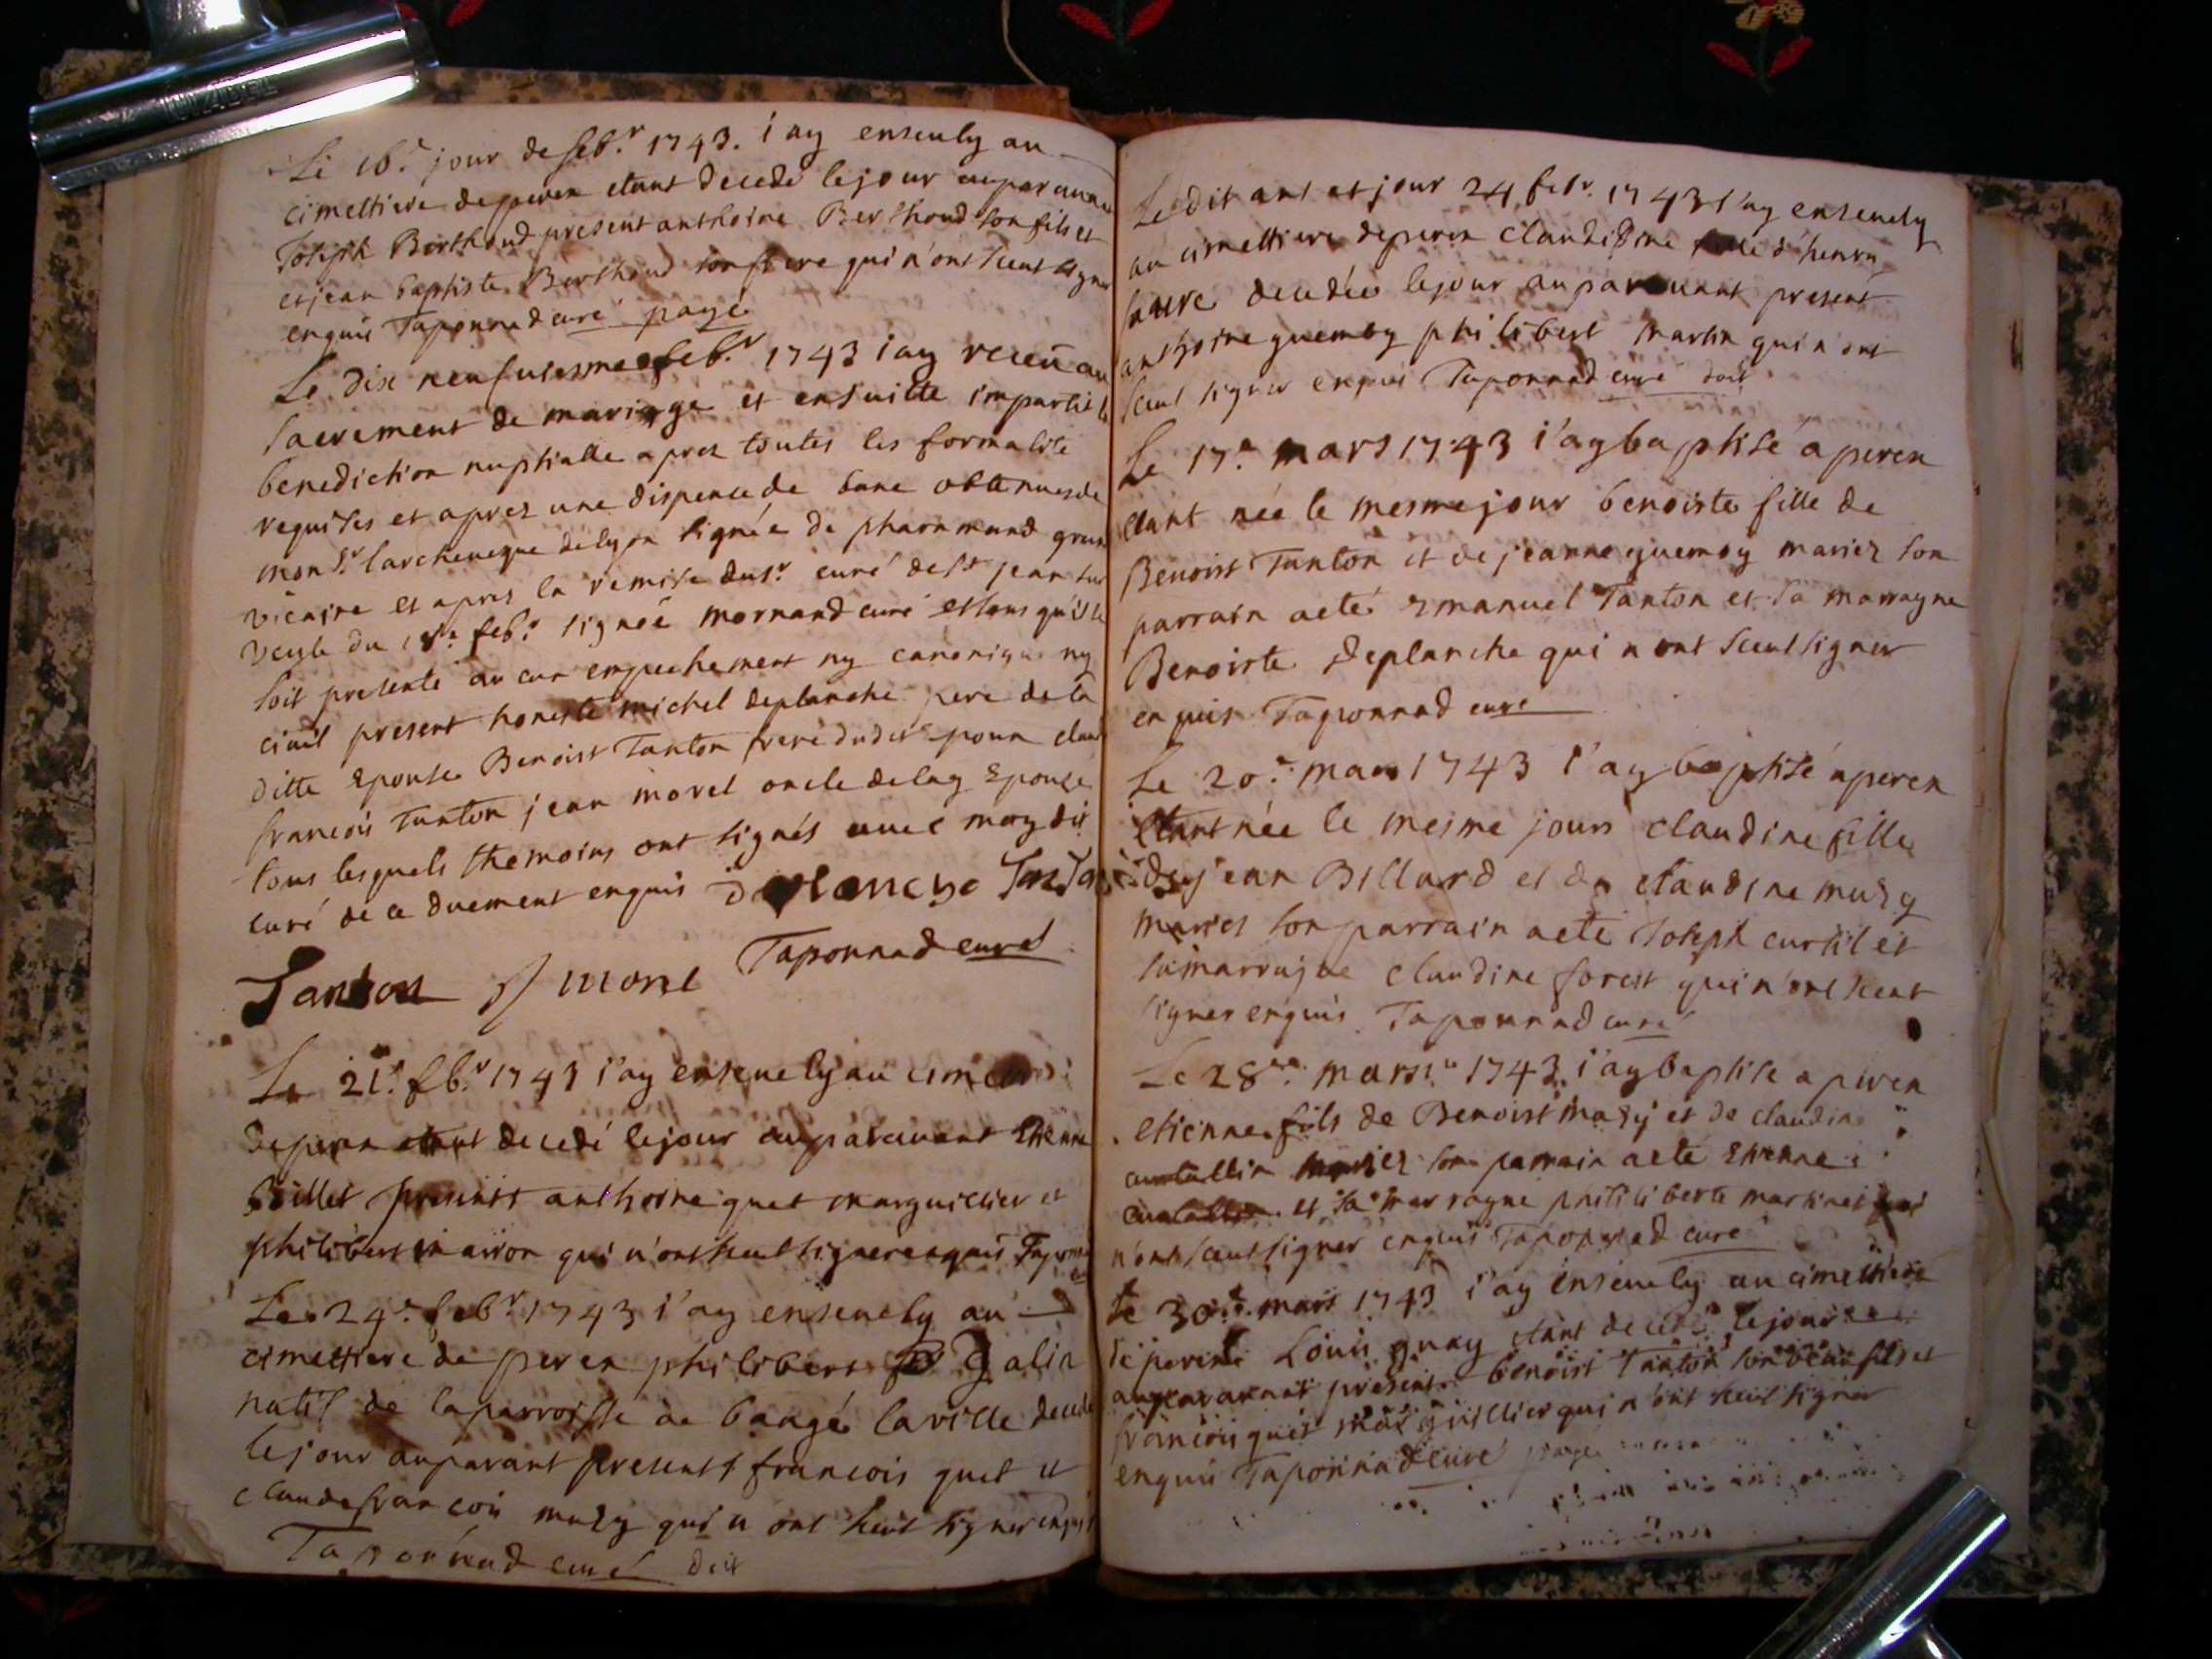 Le 16.e jour de feb.r 1743. i'ay enseuely au
cimettiere de peren etant decedé le jour auparauant
Joseph Berthoud present anthoine Berthoud son fils et
et jean baptiste Berthoud son frere qui n'ont sceut signer
enquis Taponnad curé payé
Le dix neufuiesme feb.r 1743 i'ay receu au
sacrement de mariage et ensuitte impartit la
benediction nuptialle apres toutes les formalité
requises et apres une dispence de banc obtenues de
mons.r l'archeueque de lyon signée de pharamund
vicaire et apres la remise du s.r curé de s.t jean sur
veyle du feb.r signée mornand curé et sans qu'il se
soit presenté aucun empechement ny canonique ny
ciuil present honeste michel deplanche pere de la
ditte Epouse Benoist Tanton frere dudit epoux claude
francois Tanton jean morel oncle de la Epouse
tous lesquels themoins ont signés auec moy dit
curé de ce duement enquis deplanche Tanton
Tanton J morel Taponnad curé
Le 21.e feb.r 1743 i'ay enseuely au
de peren etant decedé le jour auparauant Etienne
Billet presents anthoine guet marguillier et
philibert qui n'ont sceut signer enquis Taponnad
Le 24.e feb.r 1743 i'ay enseuely au
cimettiere de peren philibert Galin
natif de la parroisse de baugé la ville decedé
le jour auparant presents francois guet et
claude francois muzy qui n ont sceut signer enquis
Taponnad curé doit
Le dit ant et jour 24 febr. 1743 i'ay enseuely
au cimettiere de peren Claudi ine fille d'henry
decedée le jour auparauant present
anthoine guemoy philibert martin qui n'ont
sceut signer enquis Taponnad curé doit
Le 17.e mars 1743 i'ay baptisé a peren
etant née le mesme jour benoiste fille de
Benoist Tanton et de jeanne guemoy mariez son
parrain a eté Emanuel Tanton et sa marrayne
Benoiste Deplanche qui n ont sceut signer
enquis Taponnad curé
Le 20.e mars 1743 i'ay baptisé a peren
etant née le mesme jours claudine fille
de jean Billard et de claudine muzy
mariez son parrain a eté Joseph curtil et
sa marrayne claudine forest qui n'ont sceut
signer enquis Taponnad curé
Le 28.e mars 1743 i'ay baptisé a peren
etienne fils de Benoist mazy et de claudine
mariez son parrain a eté Etienne
et sa marrayne philiberte martinet qui
n'ont sceut signer enquis Taponnad curé
Le 30.e mars 1743 i'ay enseuely au cimettiere
de peren Louis guay etant decedé le jour
auparauant present benoist Tanton son beau fils et
francois guet marguillier qui n'ont sceut signer
enquis Taponnad curé payé